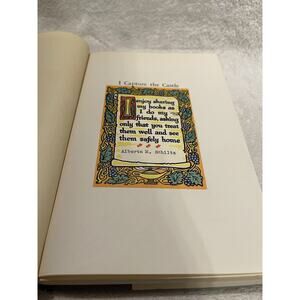 I Capture the Castle
I enjoy sharing
my books as
I do my
friends, asking
only that you treat
them well and see
them safely home
Alberta M. Schilts